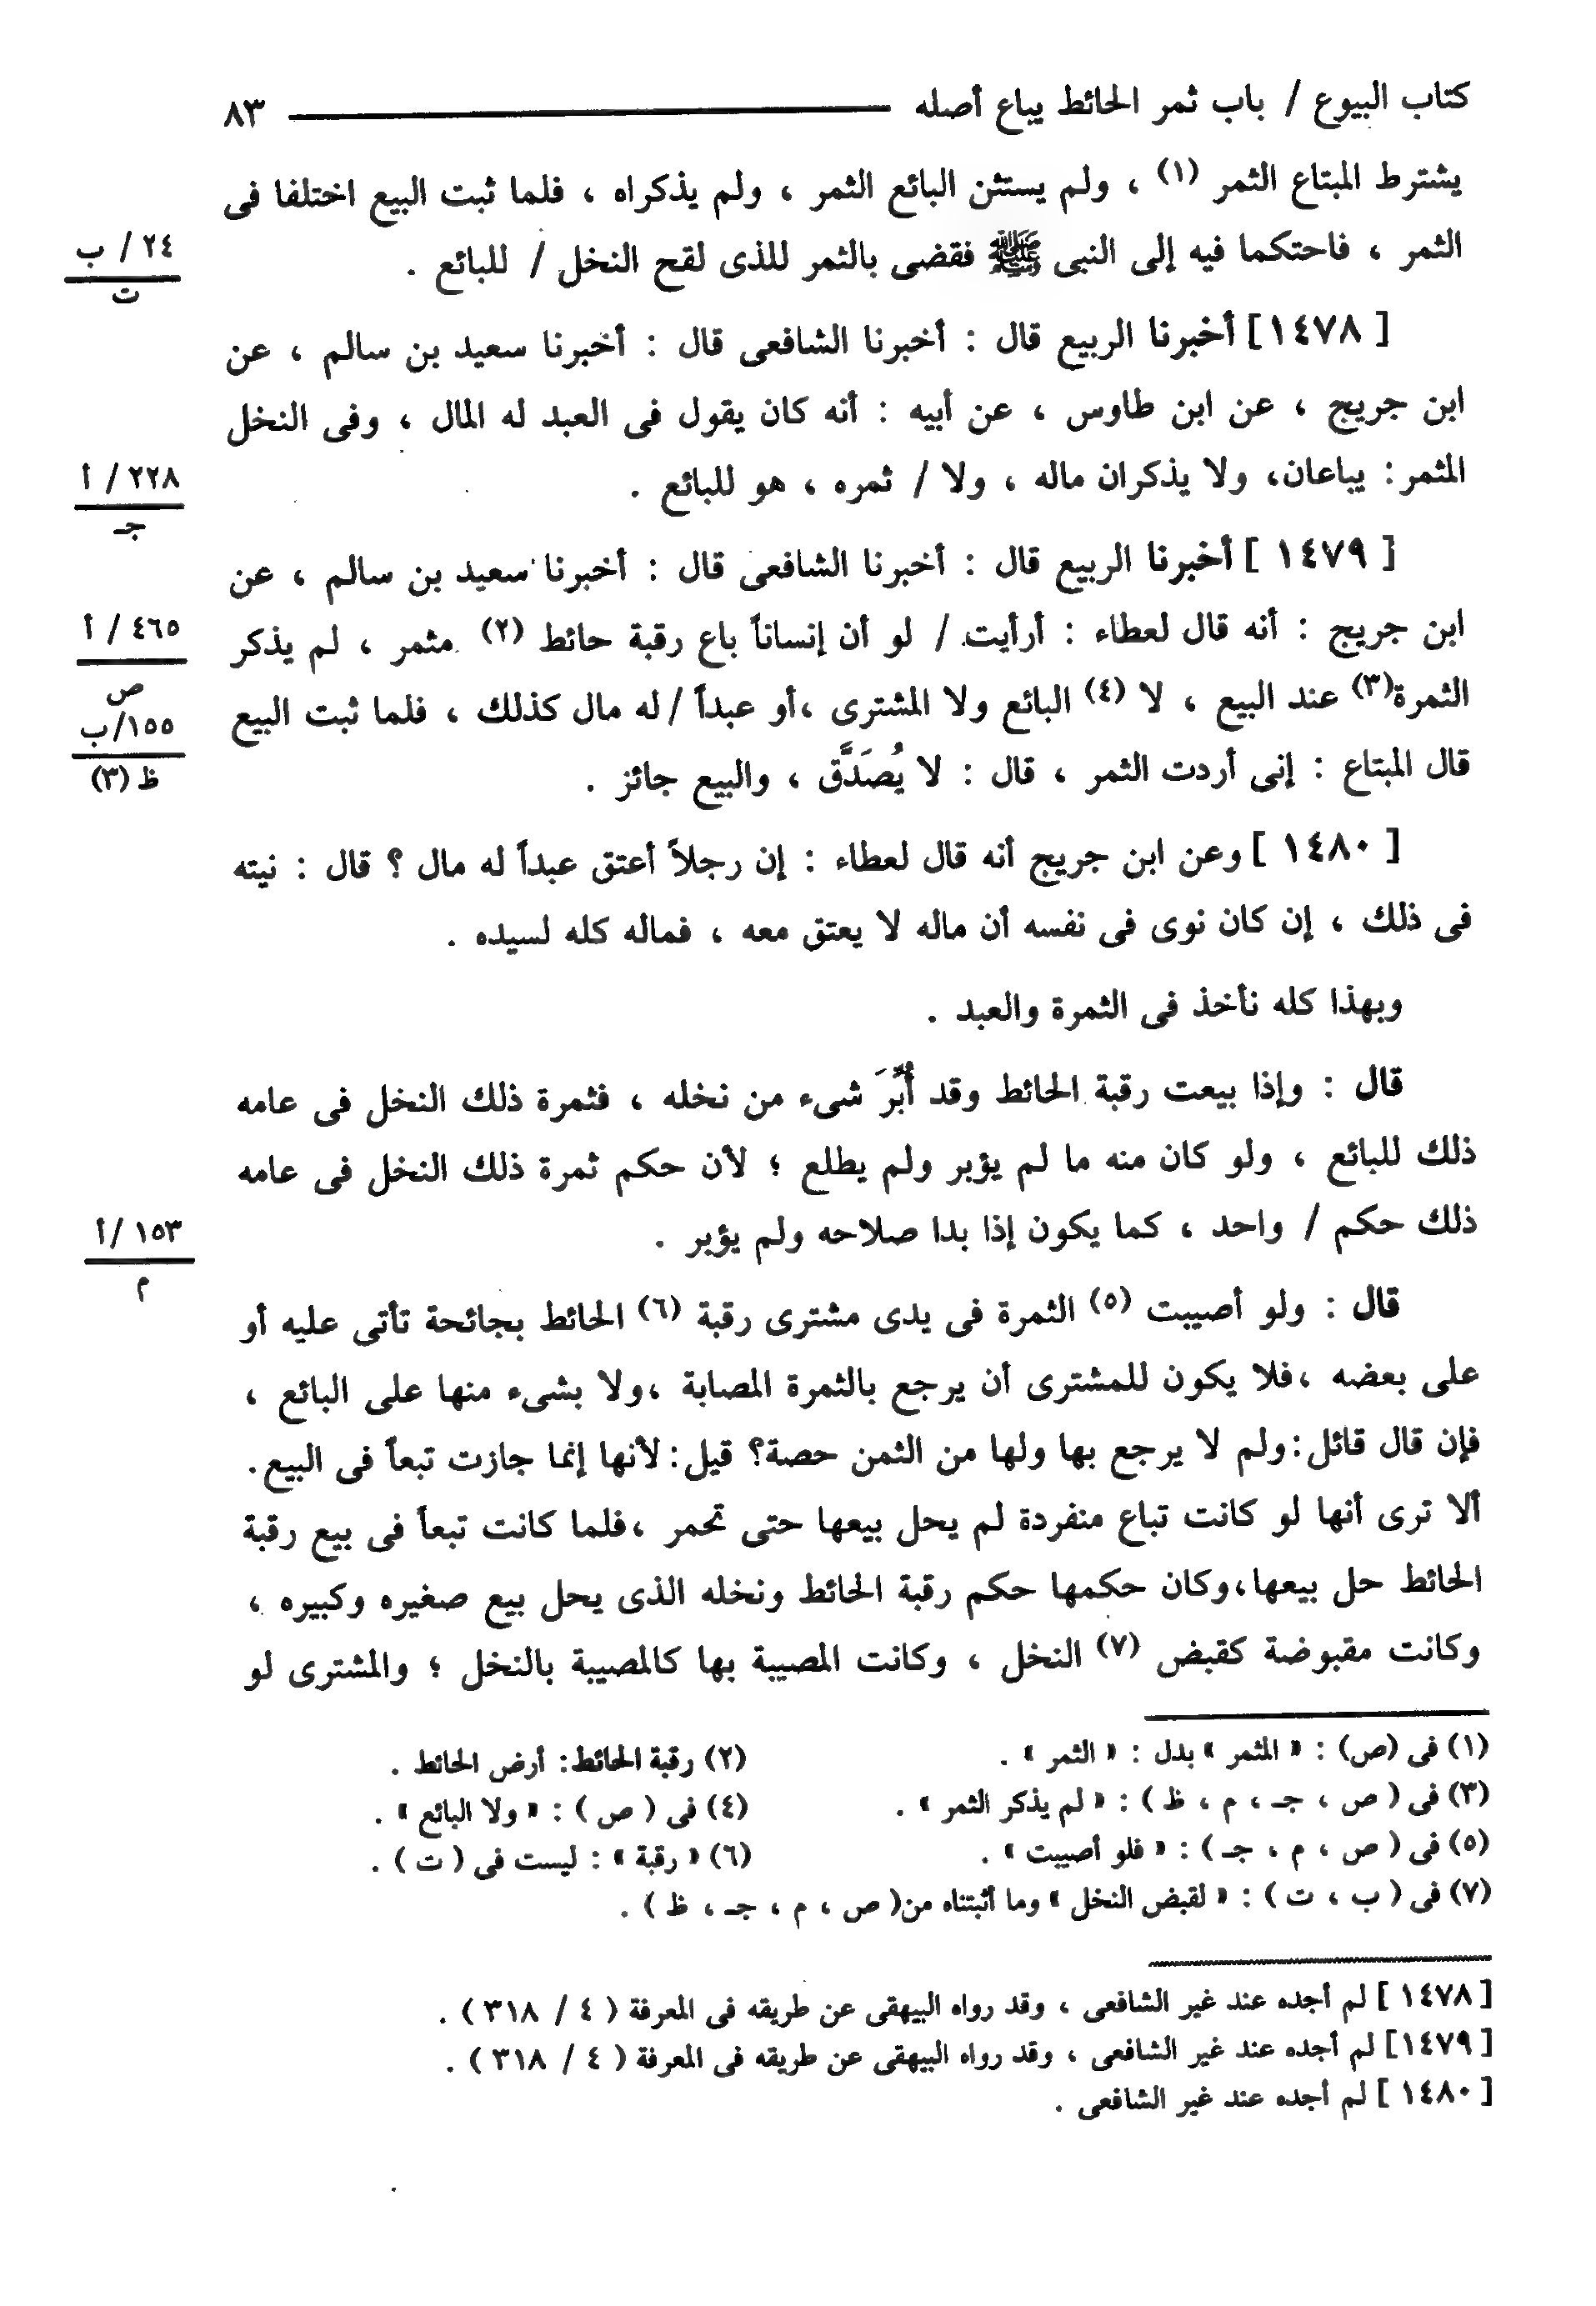 كتاب البيوع / باب ثمر الحائط يباع أصله ٨٣
يشترط المبتاع الثمر (١) ، ولم يستثن البائع الثمر ، ولم يذكراه ، فلما ثبت البيع اختلفا فى
الثمر ، فاحتكما فيه إلى النبى ﷺ فقضى بالثمر للذى لقح النخل / للبائع .
٢٤ / ب
ت
[ ١٤٧٨] أخبرنا الربيع قال : أخبرنا الشافعى قال : أخبرنا سعيد بن سالم ، عن
ابن جريج ، عن ابن طاوس ، عن أبيه : أنه كان يقول فى العبد له المال ، وفى النخل
المثمر: يباعان، ولا يذكران ماله ، ولا / ثمره ، هو للبائع .
٢٢٨ / أ
جـ
[ ١٤٧٩ ] أخبرنا الربيع قال : أخبرنا الشافعى قال : أخبرنا سعيد بن سالم ، عن
ابن جريج : أنه قال لعطاء : أرأيت / لو أن إنساناً باع رقبة حائط (٢) مثمر ، لم يذكر
٤٦٥ / أ
ص
الثمرة(٣) عند البيع ، لا (٤) البائع ولا المشترى ،أو عبداً /له مال كذلك ، فلما ثبت البيع
١٥٥/ب
ظ (٣)
قال المبتاع : إنى أردت الثمر ، قال : لا يُصَدَّق ، والبيع جائز .
[ ١٤٨٠ ] وعن ابن جريج أنه قال لعطاء : إن رجلاً أعتق عبداً له مال ؟ قال : نيته
فى ذلك ، إن كان نوى فى نفسه أن ماله لا يعتق معه ، فماله كله لسيده .
وبهذا كله نأخذ فى الثمرة والعبد .
قال : وإذا بيعت رقبة الحائط وقد أُبِّرَ شىء من نخله ، فثمرة ذلك النخل فى عامه
ذلك للبائع ، ولو كان منه ما لم يؤبر ولم يطلع ؛ لأن حكم ثمرة ذلك النخل فى عامه
ذلك حكم / واحد ، كما يكون إذا بدا صلاحه ولم يؤبر .
١٥٣ /أ
م
قال : ولو أصيبت (٥) الثمرة فى يدى مشترى رقبة (٦) الحائط بجائحة تأتى عليه أو
على بعضه ،فلا يكون للمشترى أن يرجع بالثمرة المصابة ،ولا بشىء منها على البائع ،
فإن قال قائل:ولم لا يرجع بها ولها من الثمن حصة؟ قيل:لأنها إنما جازت تبعاً فى البيع.
ألا ترى أنها لو كانت تباع منفردة لم يحل بيعها حتى تحمر ،فلما كانت تبعاً فى بيع رقبة
الحائط حل بيعها،وكان حكمها حكم رقبة الحائط ونخله الذى يحل بيع صغيره وكبيره ،
وكانت مقبوضة كقبض (٧) النخل ، وكانت المصيبة بها كالمصيبة بالنخل ؛ والمشترى لو
(١) فى (ص) : « المثمر » بدل : « الثمر » .
(٢) رقبة الحائط: أرض الحائط .
(٣) فى ( ص ، جـ ، م ، ظ ) : « لم يذكر الثمر » .
(٤) فى ( ص ) : « ولا البائع » .
(٥) فى ( ص ، م ، جـ ) : « فلو أصيبت » .
(٦) « رقبة » : ليست فى ( ت ) .
(٧) فى ( ب ، ت ) : « لقبض النخل » وما أثبتناه من( ص ، م ، جـ ، ظ ) .
[ ١٤٧٨ ] لم أجده عند غير الشافعى ، وقد رواه البيهقى عن طريقه فى المعرفة ( ٤ / ٣١٨ ) .
[ ١٤٧٩] لم أجده عند غير الشافعى ، وقد رواه البيهقى عن طريقه فى المعرفة ( ٤ / ٣١٨ ) .
[ ١٤٨٠ ] لم أجده عند غير الشافعى .